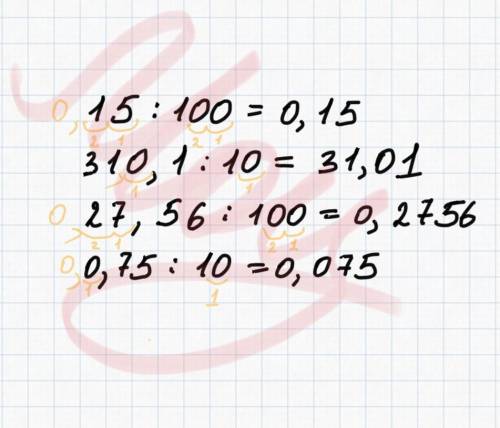 0, 15 : 100 = 0, 15
2 1 2 1
310, 1 : 10 = 31, 01
1 1
0 27, 56 : 100 = 0, 2756
, 2 1 2 1
0, 0, 75 : 10 = 0, 075
1 1